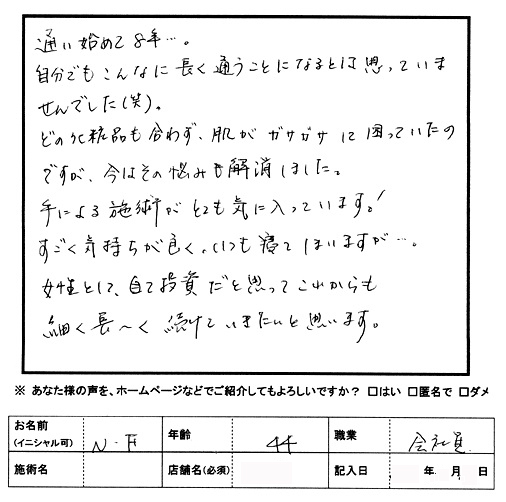 通い始めて8年…。
自分でもこんなに長く通うことになるとは思っていま
せんでした(笑)。
どの化粧品も合わず、肌がガサガサに困っていたの
ですが、今はその悩みも解消しました。
手による施術がとても気に入っています!
すごく気持ちが良く、いつも寝てしまいますが…。
女性として、自己投資だと思ってこれからも
細く長〜く続けていきたいと思います。
※ あなた様の声を、ホームページなどでご紹介してもよろしいですか? □はい □匿名で □ダメ
お名前(イニシャル可) N・F 年齢 44 職業 会社員
施術名 店舗名(必須) 記入日 年 月 日